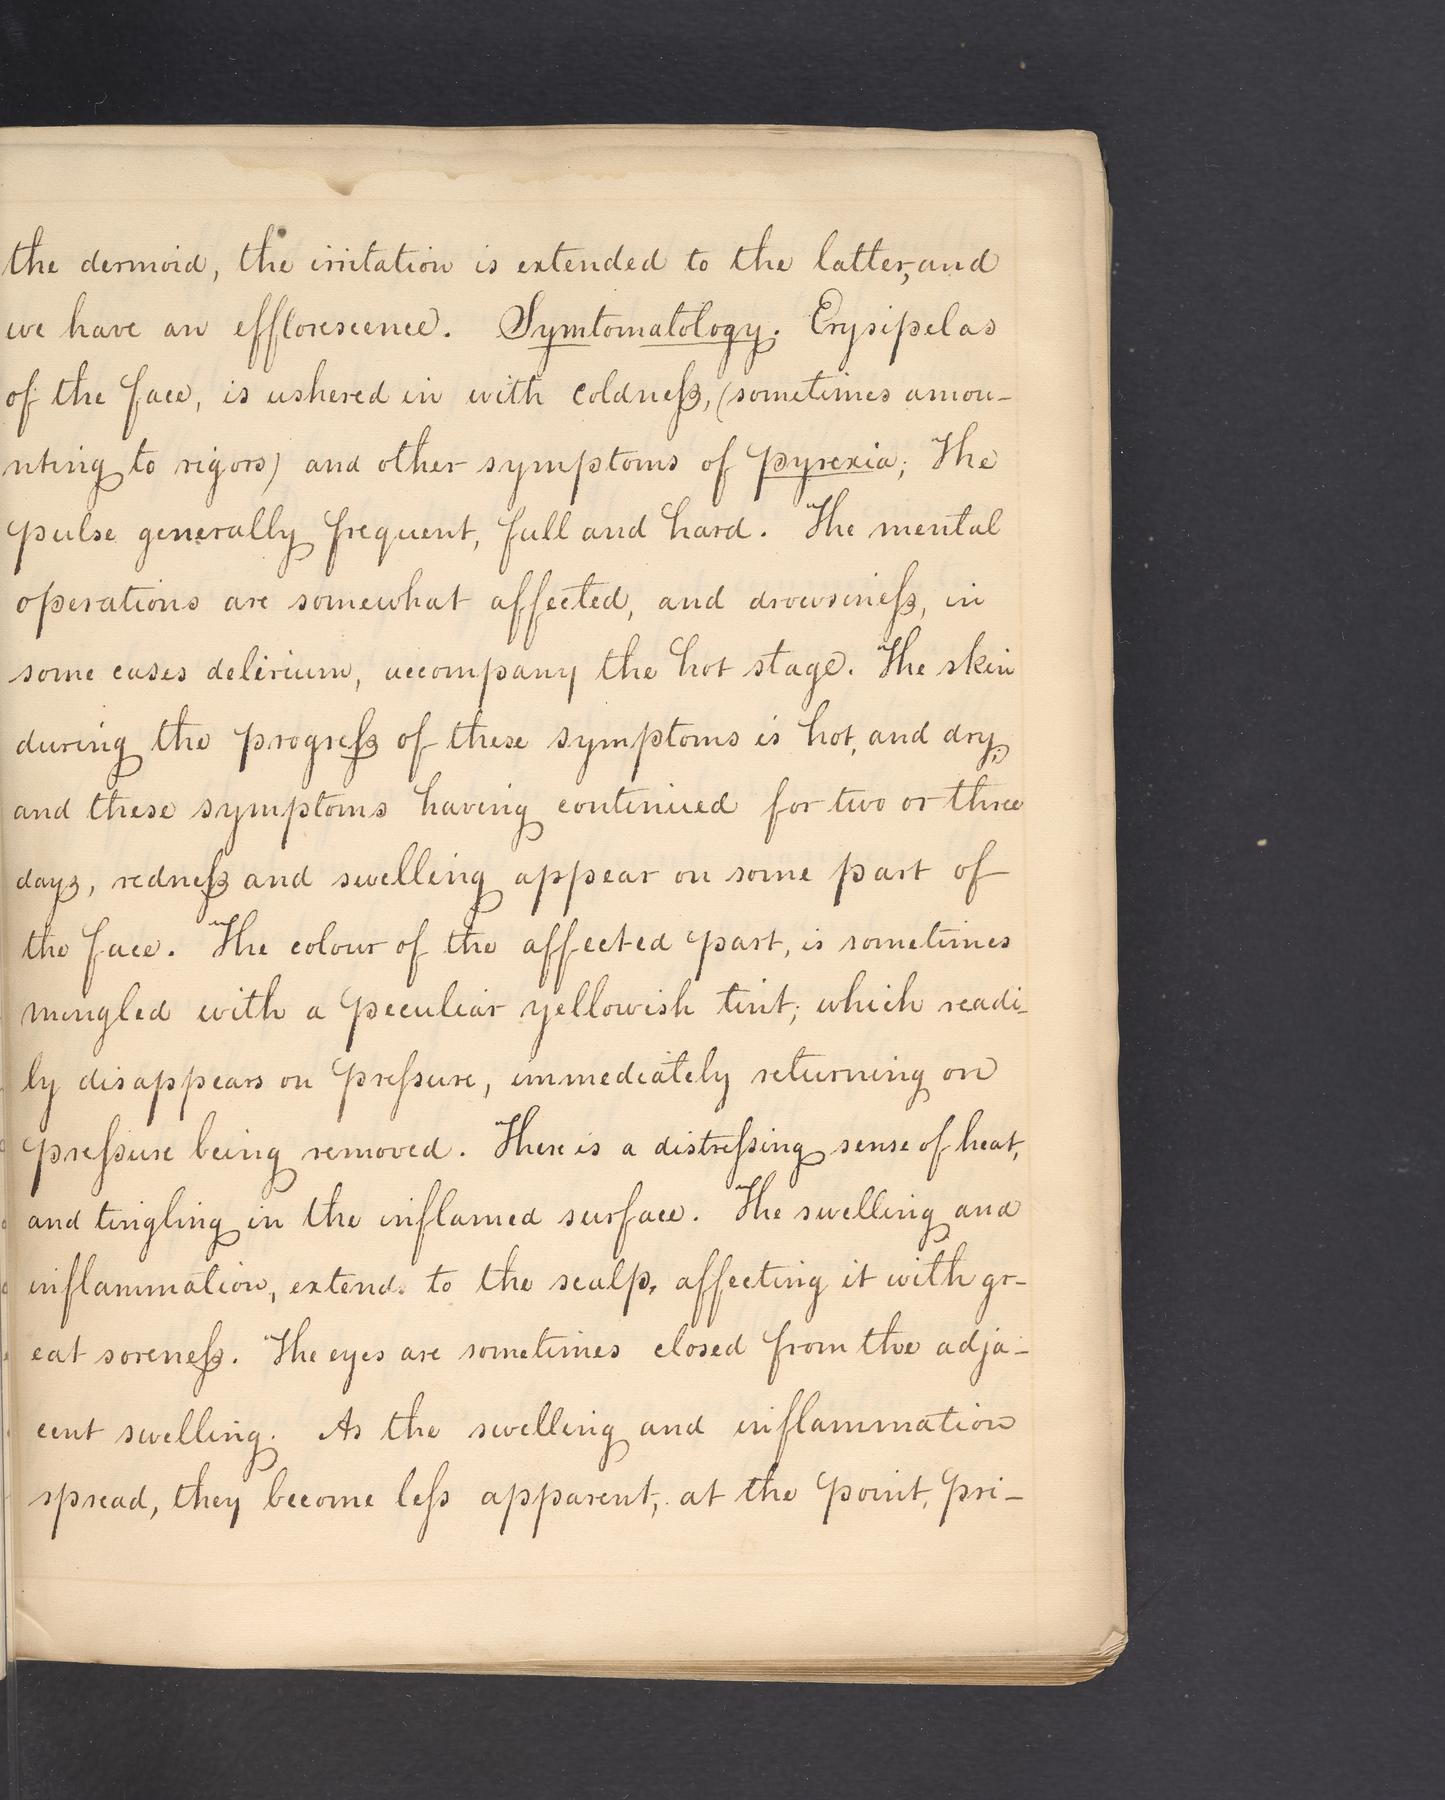 the dermoid, the irritation is extended to the latter, and
we have an efflorescence. Symtomatology. Erysipelas
of the face, is ushered in with coldness, (sometimes amou-
nting to rigors) and other symptoms of pyrexia; The
pulse generally frequent, full and hard. The mental
operations are somewhat affected, and drowsiness, in
some cases delirium, accompany the hot stage. The skin
during the progress of these symptoms is hot, and dry,
and these symptoms having continued for two or three
days, redness and swelling appear on some part of
the face. The colour of the affected part, is sometimes
mingled with a peculiar yellowish tint; which readi-
ly disappears on pressure, immediately returning on
pressure being removed. There is a distressing sense of heat,
and tingling in the inflamed surface. The swelling and
inflammation, extend. to the scalp, affecting it with gr-
eat soreness. The eyes are sometimes closed from the adja-
cent swelling. As the swelling and inflammation
spread, they become less apparent, at the point, pri-